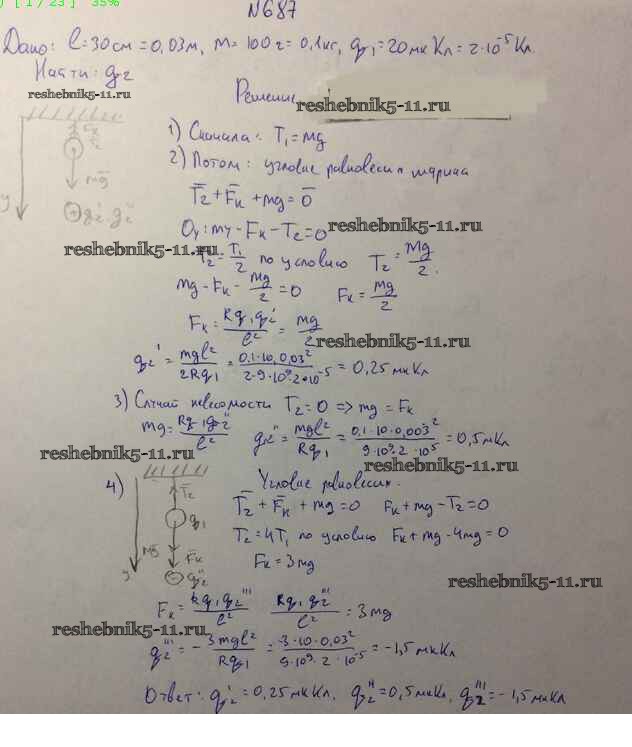 [ 1 / 23 ] 35%
№687
Дано: l=30см=0,03м, m=100г=0,1кг, q₁=20мкКл=2·10⁻⁵Кл.
Найти: q₂
reshebnik5-11.ru
Решение
reshebnik5-11.ru
1) Сначала: T₁=mg
2) Потом: условие равновесия шарика
T̄₂+F̄к+mg=0̄
mg
y
q₂' q₂''
Oy: mg-Fк-T₂=0
reshebnik5-11.ru
reshebnik5-11.ru
T₂=T₁/2 по условию T₂=mg/2.
mg-Fк-mg/2=0 Fк=mg/2
Fк=kq₁q₂'/l²=mg/2
reshebnik5-11.ru
q₂'=mgl²/2kq₁=0,1·10·0,03²/2·9·10⁹·2·10⁻⁵=0,25мкКл
3) Случай невесомости T₂=0 => mg=Fк
mg=kq₁q₂''/l² q₂''=mgl²/kq₁=0,1·10·0,003²/9·10⁹·2·10⁻⁵=0,5мкКл
reshebnik5-11.ru
reshebnik5-11.ru
4) Условие равновесия.
T̄₂
T̄₂+F̄к+mg=0 Fк+mg-T₂=0
q₁
T₂=4T₁ по условию Fк+mg-4mg=0
mg Fк
y
q₂'''
Fк=3mg
reshebnik5-11.ru
Fк=kq₁q₂'''/l² kq₁q₂'''/l²=3mg
reshebnik5-11.ru
q₂'''=-3mgl²/kq₁=-3·10·0,03²/9·10⁹·2·10⁻⁵=-1,5мкКл
Ответ: q₂'=0,25мкКл, q₂''=0,5мкКл, q₂'''=-1,5мкКл